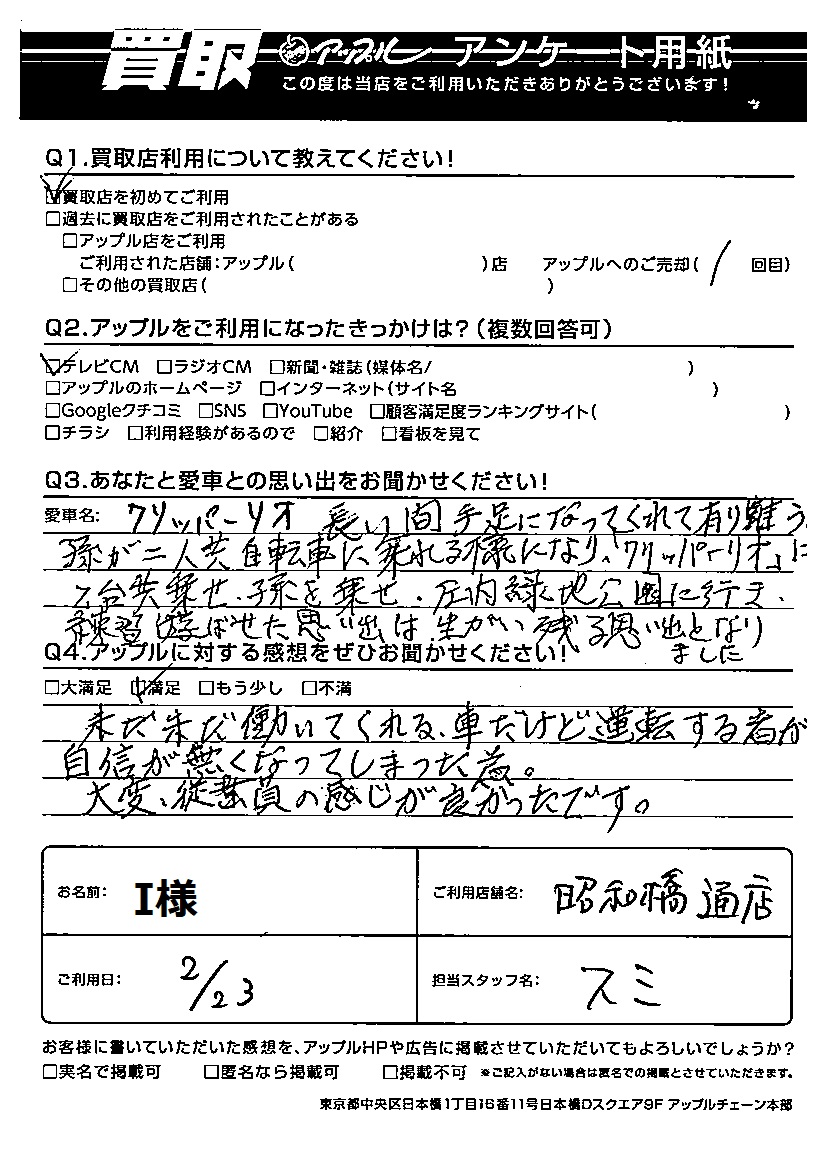 買取 アップル アンケート用紙
この度は当店をご利用いただきありがとうございます!
Q1.買取店利用について教えてください!
☑買取店を初めてご利用
□過去に買取店をご利用されたことがある
□アップル店をご利用
ご利用された店舗:アップル( )店 アップルへのご売却( / 回目)
□その他の買取店( )
Q2.アップルをご利用になったきっかけは?(複数回答可)
☑テレビCM □ラジオCM □新聞・雑誌(媒体名/ )
□アップルのホームページ □インターネット(サイト名 )
□Googleクチコミ □SNS □YouTube □顧客満足度ランキングサイト( )
□チラシ □利用経験があるので □紹介 □看板を見て
Q3.あなたと愛車との思い出をお聞かせください!
愛車名: クリッパーリオ 長い間手足になってくれて有り難う
孫が二人共自転車に乗れる様になり、「クリッパーリオ」に
2台共乗せ、孫を乗せ、庄内緑地公園に行き、
練習、遊ばせた思い出は生がい残る思い出となり
ました
Q4.アップルに対する感想をぜひお聞かせください!
□大満足 ☑満足 □もう少し □不満
未だ未だ働いてくれる、車だけど運転する者が
自信が無くなってしまった為。
大変、従業員の感じが良かったです。
お名前: I様 ご利用店舗名: 昭和橋通店
ご利用日: 2/23 担当スタッフ名: スミ
お客様に書いていただいた感想を、アップルHPや広告に掲載させていただいてもよろしいでしょうか?
□実名で掲載可 □匿名なら掲載可 □掲載不可 ※ご記入がない場合は匿名での掲載とさせていただきます。
東京都中央区日本橋1丁目16番11号日本橋Dスクエア9F アップルチェーン本部